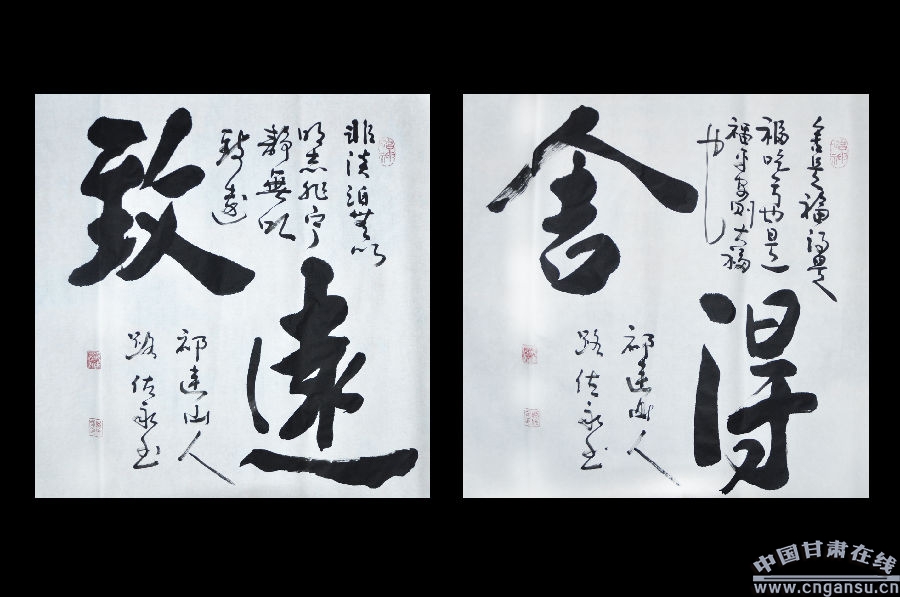 致
遠
非淡泊無以
明志非宁
靜無以
致遠
祁連山人
舍
得
舍是福得是
福吃亏也是
福平安则大福
也
祁連山人
中国甘肃在线
www.cngansu.cn